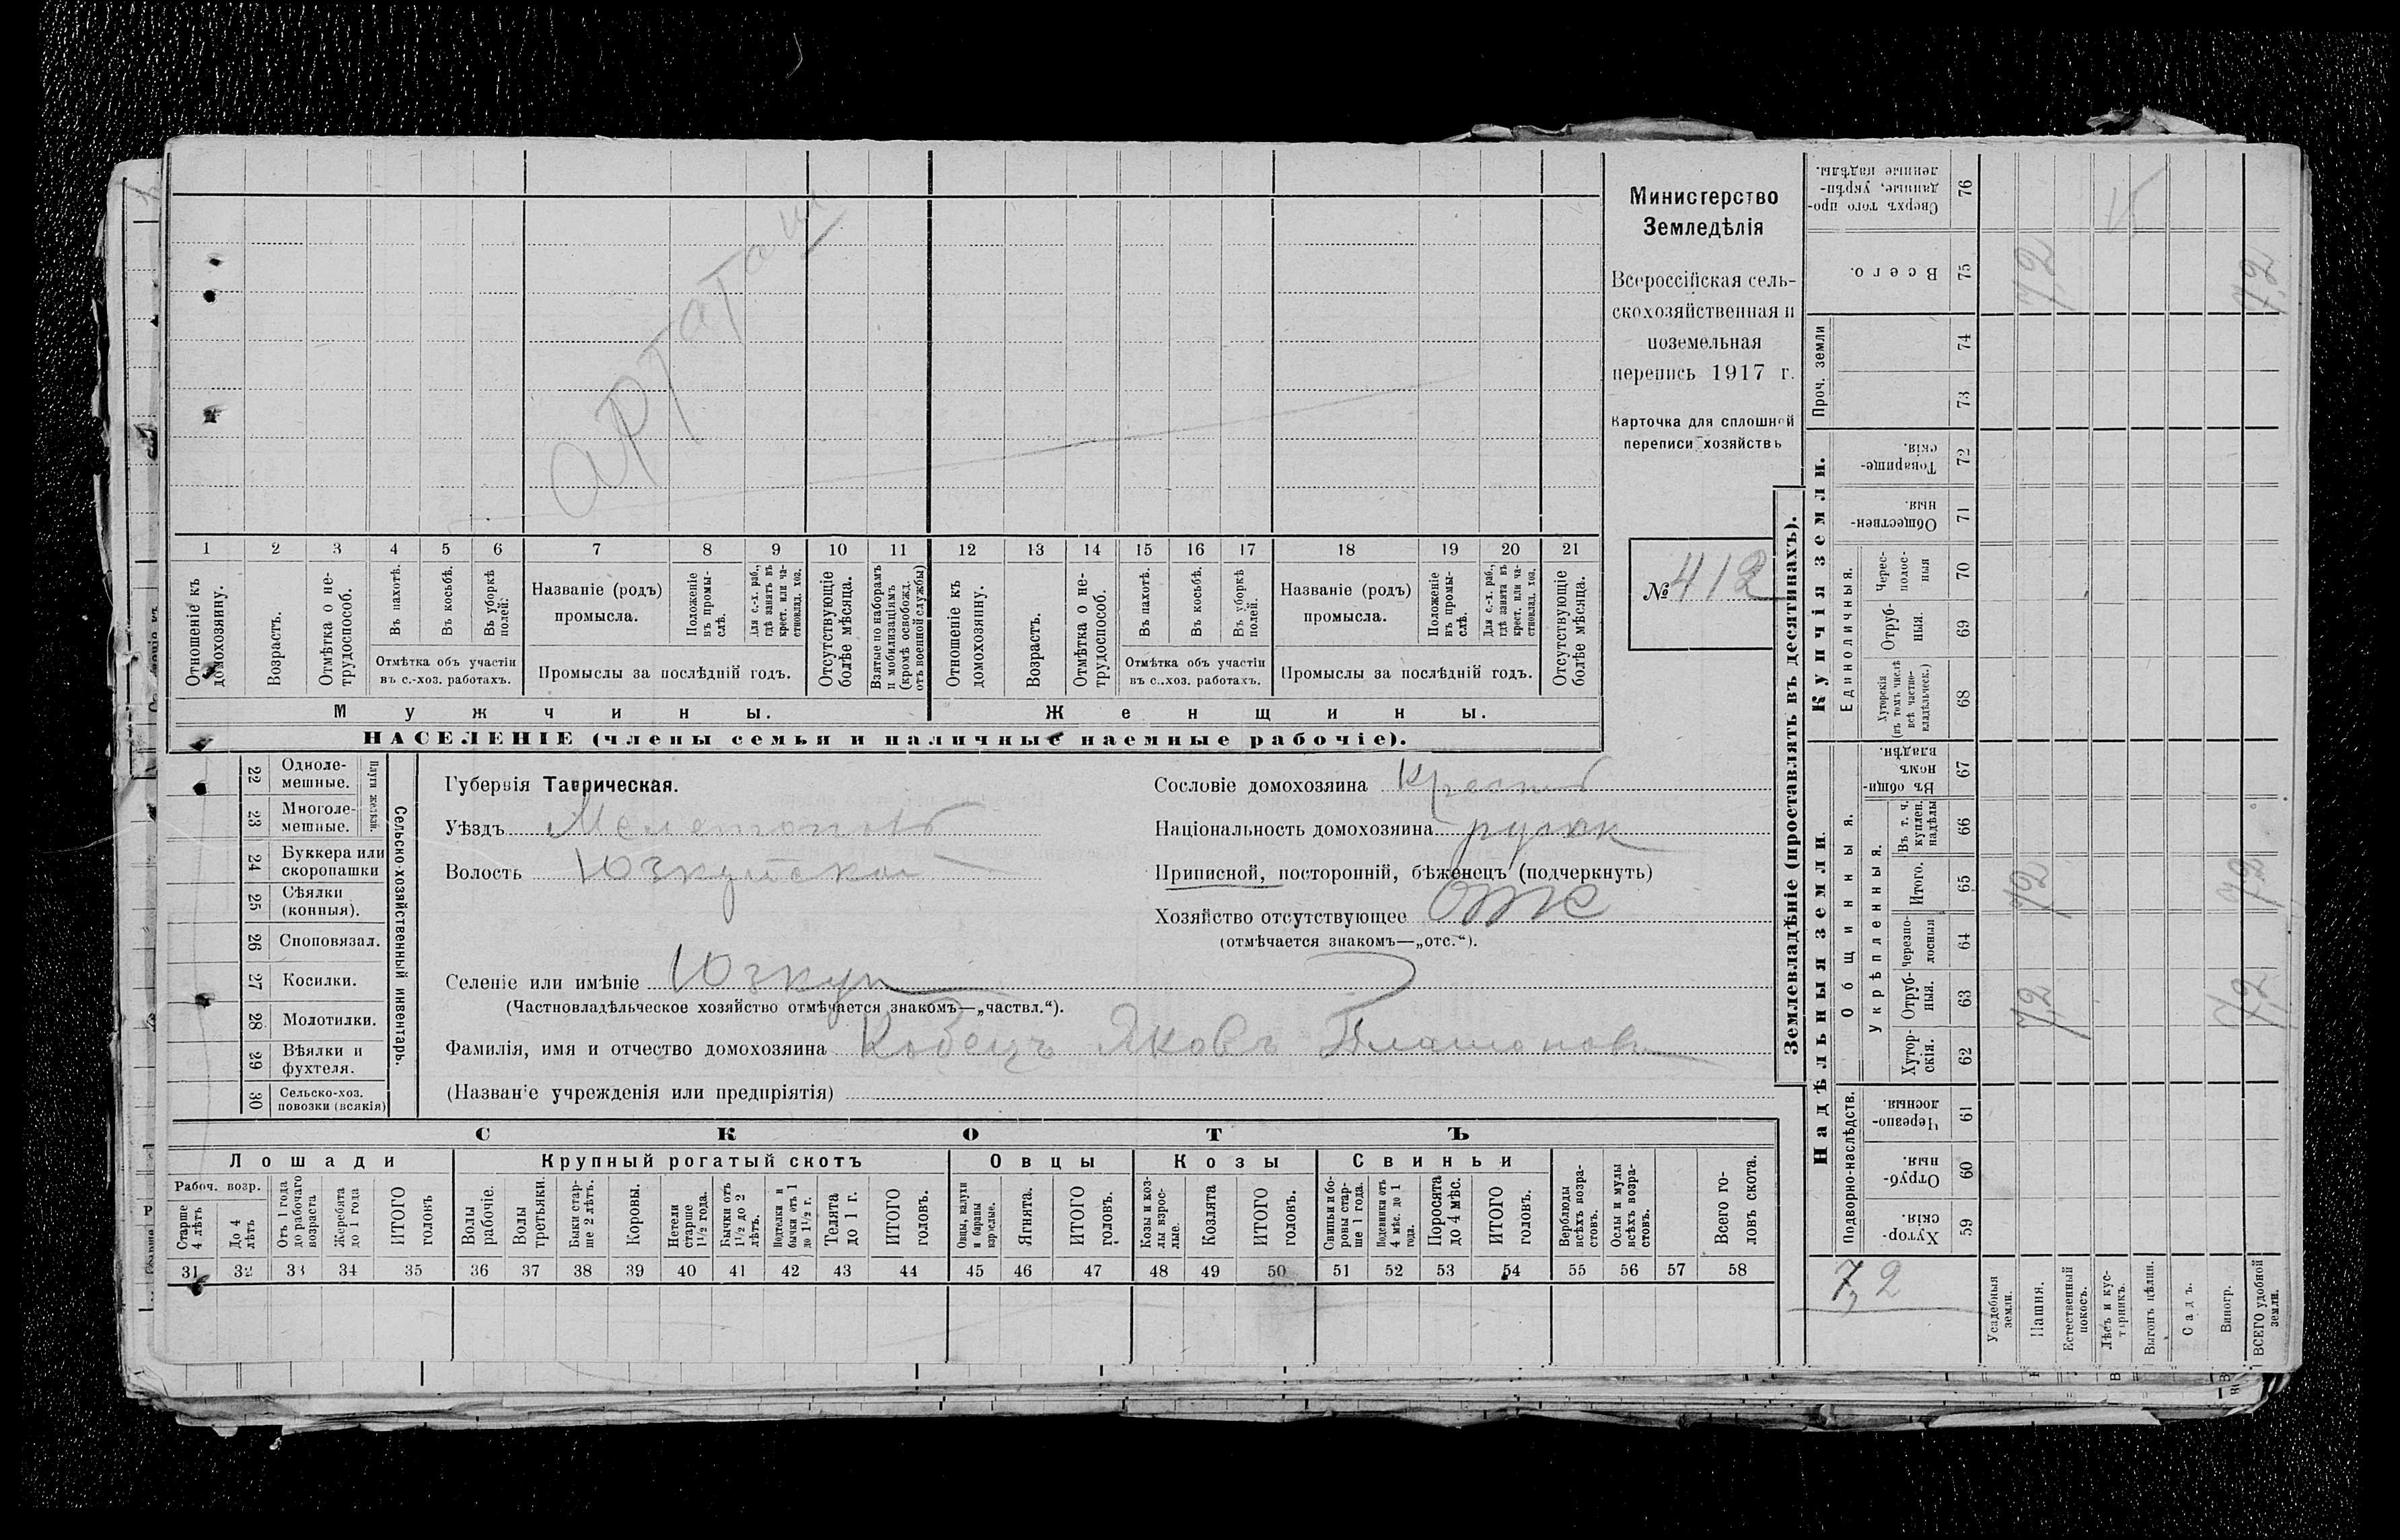 Министерство
Земледѣлія
Всероссійская сель-
скохозяйственная и
поземельная
перепись 1917 г.
Карточка для сплошной
переписи хозяйствъ
№ 412
1 2 3 4 5 6 7 8 9 10 11 12 13 14 15 16 17 18 19 20 21
Отношеніе къ домохозяину.
Возрастъ.
Отмѣтка о не-трудоспособ.
Въ пахотѣ.
Въ косьбѣ.
Въ уборкѣ полей.
Отмѣтка объ участіи
въ с.-хоз. работахъ.
Названіе (родъ)
промысла.
Положеніе въ промы-слѣ.
Для с.-х. раб., гдѣ занятъ въ крест. или ча-стновлад. хоз.
Промыслы за послѣдній годъ.
Отсутствующіе болѣе мѣсяца.
Взятые по наборамъ и мобилизаціямъ (кромѣ освобожд. отъ военной службы)
Отношеніе къ домохозяину.
Возрастъ.
Отмѣтка о не-трудоспособ.
Въ пахотѣ.
Въ косьбѣ.
Въ уборкѣ полей.
Отмѣтка объ участіи
въ с.-хоз. работахъ.
Названіе (родъ)
промысла.
Положеніе въ промы-слѣ.
Для с.-х. раб., гдѣ занята въ крест. или ча-стновлад. хоз.
Промыслы за послѣдній годъ.
Отсутствующіе болѣе мѣсяца.
Мужчины. Женщины.
НАСЕЛЕНІЕ (члены семьи и наличные наемные рабочіе).
Сельско-хозяйственный инвентарь.
Плуги желѣзн.
22 Одноле-мешные.
23 Многоле-мешные.
24 Буккера или скоропашки
25 Сѣялки (конныя).
26 Сноповязал.
27 Косилки.
28 Молотилки.
29 Вѣялки и фухтеля.
30 Сельско-хоз. повозки (всякія)
Губернія Таврическая.
Уѣздъ Мелетопольс
Волость Юзкуйской
Селеніе или имѣніе Юзкуи
(Частновладѣльческое хозяйство отмѣчается знакомъ—„частвл.“).
Фамилія, имя и отчество домохозяина Кобецъ Яковъ Платонов
(Названіе учрежденія или предпріятія)
Сословіе домохозяина Крест
Національность домохозяина русск
Приписной, посторонній, бѣженецъ (подчеркнуть)
Хозяйство отсутствующее отс
(отмѣчается знакомъ—„отс.“).
СКОТЪ
Лошади Крупный рогатый скотъ Овцы Козы Свиньи
Рабоч. возр.
Старше 4 лѣтъ
До 4 лѣтъ
Отъ 1 года до рабочаго возраста
Жеребята до 1 года
ИТОГО головъ
Волы рабочіе.
Волы третьяки.
Быки стар-ше 2 лѣтъ.
Коровы.
Нетели старше 1½ года.
Бычки отъ 1½ до 2 лѣтъ.
Подтелки и бычки отъ 1 до 1½ г.
Телята до 1 г.
ИТОГО головъ.
Овцы, валухи и бараны взрослые.
Ягнята.
ИТОГО головъ.
Козы и коз-лы взрос-лые.
Козлята
ИТОГО головъ.
Свиньи и бо-ровы стар-ше 1 года.
Подсвинки отъ 4 мѣс. до 1 года.
Поросята до 4 мѣс.
ИТОГО головъ.
Верблюды всѣхъ возра-стовъ.
Ослы и мулы всѣхъ возра-стовъ.
Всего го-ловъ скота.
31 32 33 34 35 36 37 38 39 40 41 42 43 44 45 46 47 48 49 50 51 52 53 54 55 56 57 58
Землевладѣніе (проставлять въ десятинахъ).
Надѣльныя земли. Купчія земли.
Подворно-наслѣдств.
Общинныя.
Укрѣпленныя.
Единоличныя.
Проч. земли
Хутор-скія. 59
Отруб-ныя. 60
Черезпо-лосныя. 61
Хутор-скія. 62
Отруб-ныя. 63
Черезпо-лосныя 64
Итого. 65
Въ т. ч. куплен. надѣлы 66
Въ общин-номъ владѣн. 67
Хуторскія (въ томъ числѣ всѣ частно-владѣльческ.) 68
Отруб-ныя. 69
Черес-полос-ныя 70
Обществен-ныя. 71
Товарище-скія. 72
73
74
Всего. 75
Сверхъ того про-данные, укрѣп-ленные надѣлы. 76
7,2
Усадебныя земли.
Пашня. 7,2 7,2 7,2
Естественный покосъ.
Лѣсъ и кус-тарникъ.
Выгонъ цѣлин.
Садъ.
Виногр.
ВСЕГО удобной земли. 7,2 7,2 7,2